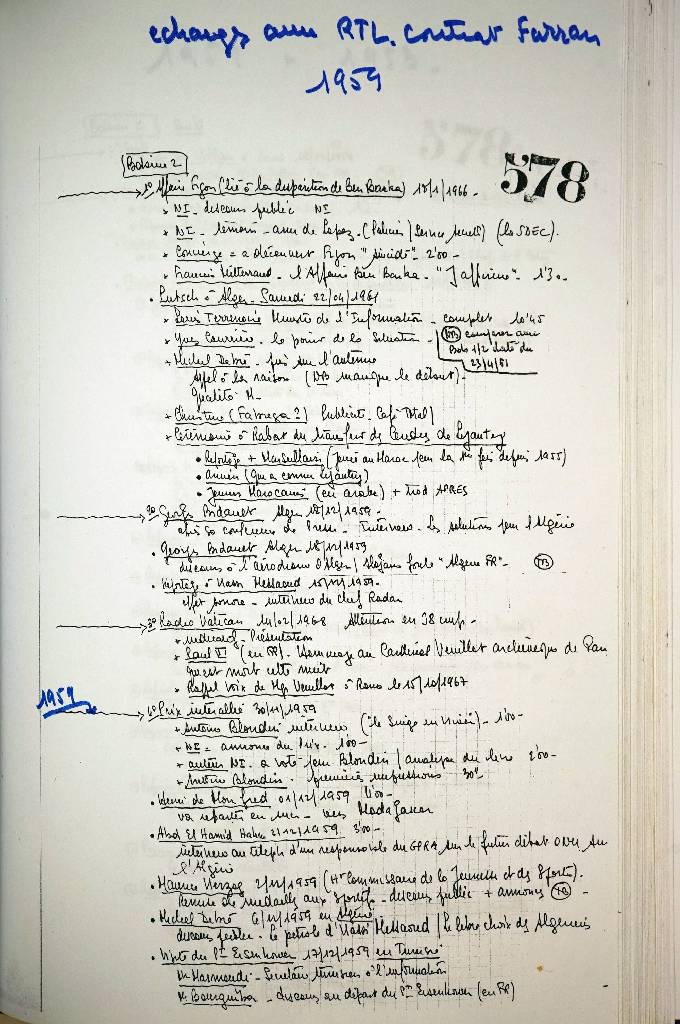 echange avec RTL. contrat Farran
1959
578
Bobine 2
1° Affaire Figon (lié à la disparition de Ben Barka) 18/1/1966 -
* NI - discours public NI
* NI - témoin - ami de Lopez - (Policier / Service secret) (la SDEC).
* Concierge = a découvert Figon "suicidé" - 2'00 -
* François Mitterrand - l'Affaire Ben Barka - "J'affirme" - 1'30 -
• Putsch à Alger - Samedi 22/04/1961
* Louis Terrenoire Ministre de l'Information - complet 10'45
* Yves Courrière - le point de la Situation -
NB comparer avec
Bob 1/2 daté du
23/4/61
* Michel Debré - sur l'antenne
Appel à la raison (NB manque le début) -
Qualité M -
* Christine (Fabrega ?) Publicité - Café Total
* Cérémonie à Rabat du transfert des Cendres de Lyautey
• Reportage + Marseillaise (jouée au Maroc pour la 1ère fois depuis 1955)
• Ancien (qui a connu Lyautey)
• Jeunes Marocains (en arabe) + trad APRES
2° Georges Bidault Alger 18/12/1959 -
après sa conférence de Presse - Interview - Les solutions pour l'Algérie
• Georges Bidault Alger 18/12/1959
discours à l'aérodrome d'Alger / slogans foule "Algérie FR" - TB
• Reportage à Hassi Messaoud 15/12/1959 -
effet sonore - interview du chef Radar
3° Radio Vatican 14/02/1968 Attention en 38 cm/s -
* indicatif - Présentation
* Paul VI (en FR) - Hommage au Cardinal Veuillot archevêque de Paris
qui est mort cette nuit
* Rappel voix de Mgr Veuillot à Rome le 15/10/1967
1959
4° Prix interallié 30/11/1959
* Antoine Blondin interview (Un Singe en Hiver) - 1'00 -
* NI = annonce du Prix - 1'00 -
* auteur NI - a voté pour Blondin / analyse du livre 2'00 -
* Antoine Blondin - premières impressions 30"
• Henri de Monfreid 01/12/1959 4'00 -
va repartir en mer - vers Madagascar
• Abd El Hamid 2/12/1959 3'00 -
interview au téléph d'un responsable du GPRA sur le futur débat ONU sur
l'Algérie
• Maurice Herzog 2/12/1959 (Ht Commissaire de la Jeunesse et des Sports).
Remise de médailles aux sportifs - discours public + annonces TB
• Michel Debré 6/12/1959 en Algérie
discours public - le pétrole d'Hassi Messaoud / le libre choix des Algériens
• Visite du Pt Eisenhower 17/12/1959 en Tunisie
Mr Masmoudi - Secrétaire tunisien à l'information
M. Bourguiba - discours au départ du Pt Eisenhower (en FR)